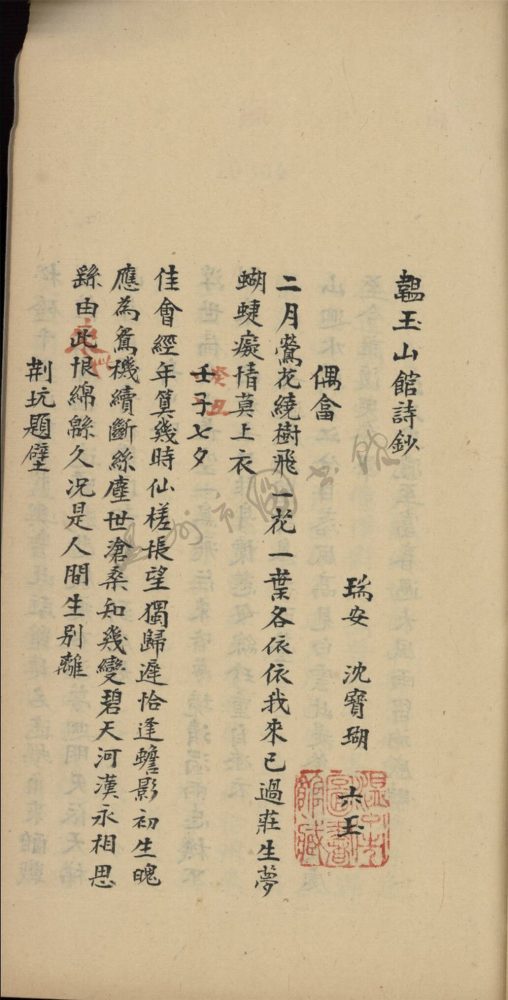 韞玉山館詩鈔
瑞安 沈寶瑚 六玉
偶畣
二月鶯花繞樹飛一花一葉各依依我來已過莊生夢
蝴蜨癡情莫上衣
壬子七夕
癸丑
佳會經年算幾時仙槎悵望獨歸遲恰逢蟾影初生魄
應為鴛機續斷絲塵世滄桑知幾變碧天河漢永相思
繇由此恨綿綿久况是人間生別離
從此
荆坑題壁